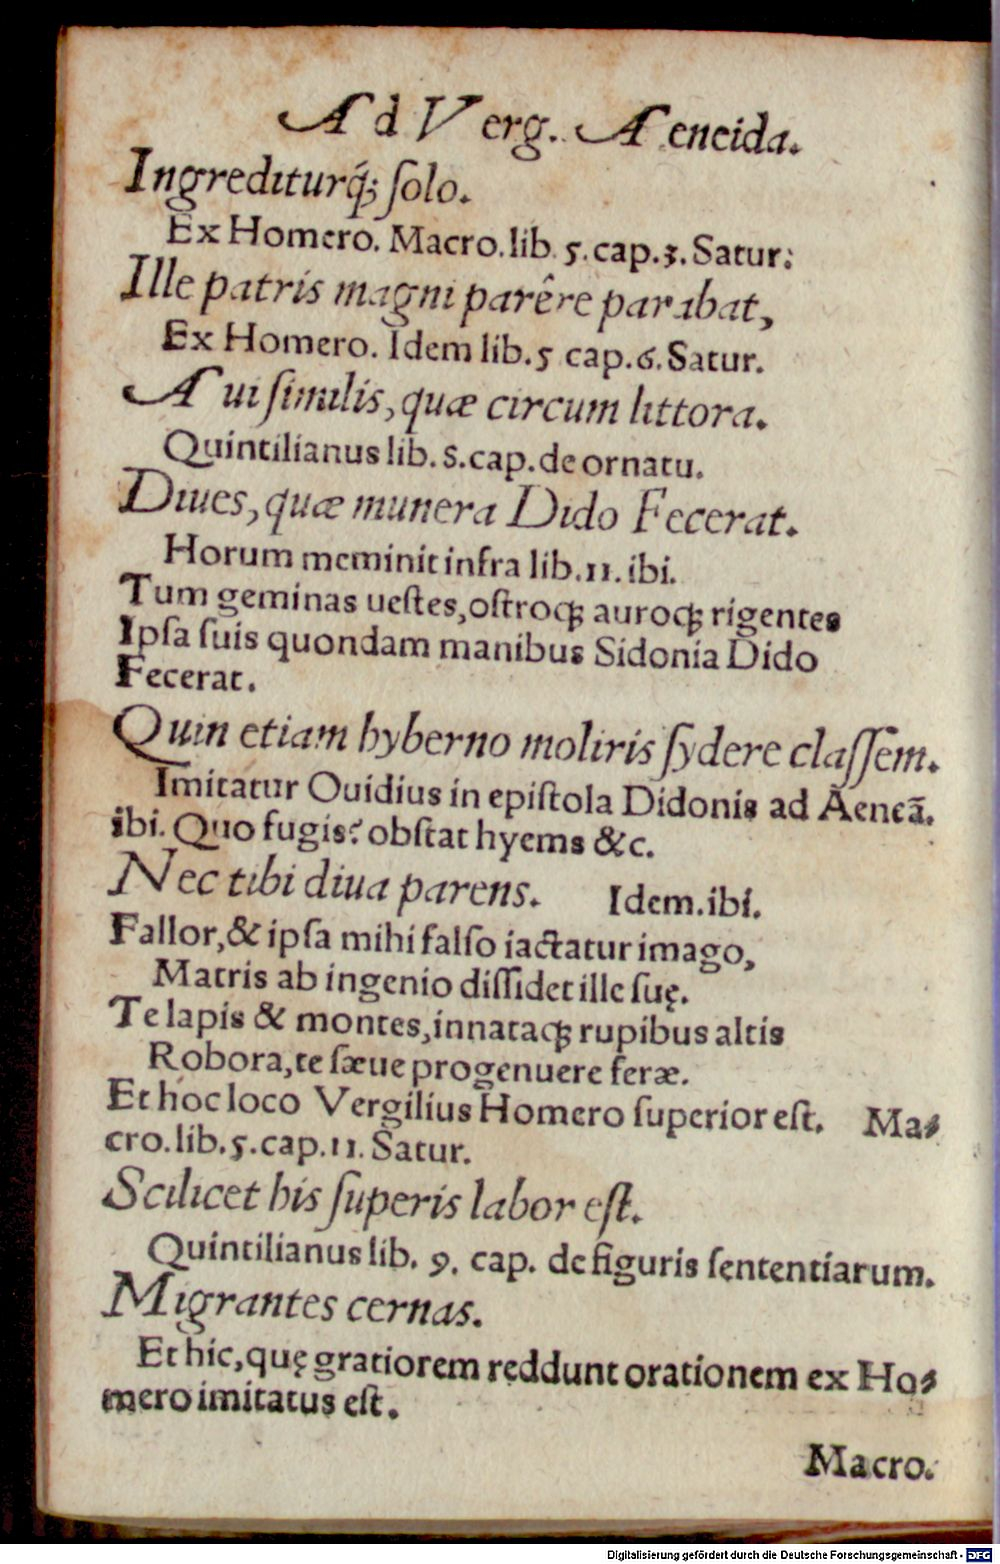 Ad Verg. Aeneida.
Ingrediturq́; ſolo.
Ex Homero. Macro. lib. 5. cap. 3. Satur:
Ille patris magni parêre parabat,
Ex Homero. Idem lib. 5 cap. 6. Satur.
Aui ſimilis, quæ circum littora.
Quintilianus lib. 8. cap. de ornatu.
Diues, quæ munera Dido Fecerat.
Horum meminit infra lib. 11. ibi.
Tum geminas ueſtes, oſtroq; auroq; rigentes
Ipſa ſuis quondam manibus Sidonia Dido
Fecerat.
Quin etiam hyberno moliris ſydere claſſem.
Imitatur Ouidius in epiſtola Didonis ad Aeneā.
ibi. Quo fugis? obſtat hyems &c.
Nec tibi diua parens. Idem. ibi.
Fallor, & ipſa mihi falſo iactatur imago,
Matris ab ingenio diſſidet ille ſuę.
Te lapis & montes, innataq; rupibus altis
Robora, te ſæue progenuere feræ.
Et hoc loco Vergilius Homero ſuperior eſt. Ma⸗
cro. lib. 5. cap. 11. Satur.
Scilicet his ſuperis labor eſt.
Quintilianus lib. 9. cap. de figuris ſententiarum.
Migrantes cernas.
Et hic, quę gratiorem reddunt orationem ex Ho⸗
mero imitatus eſt.
Macro.
Digitalisierung gefördert durch die Deutsche Forschungsgemeinschaft - DFG